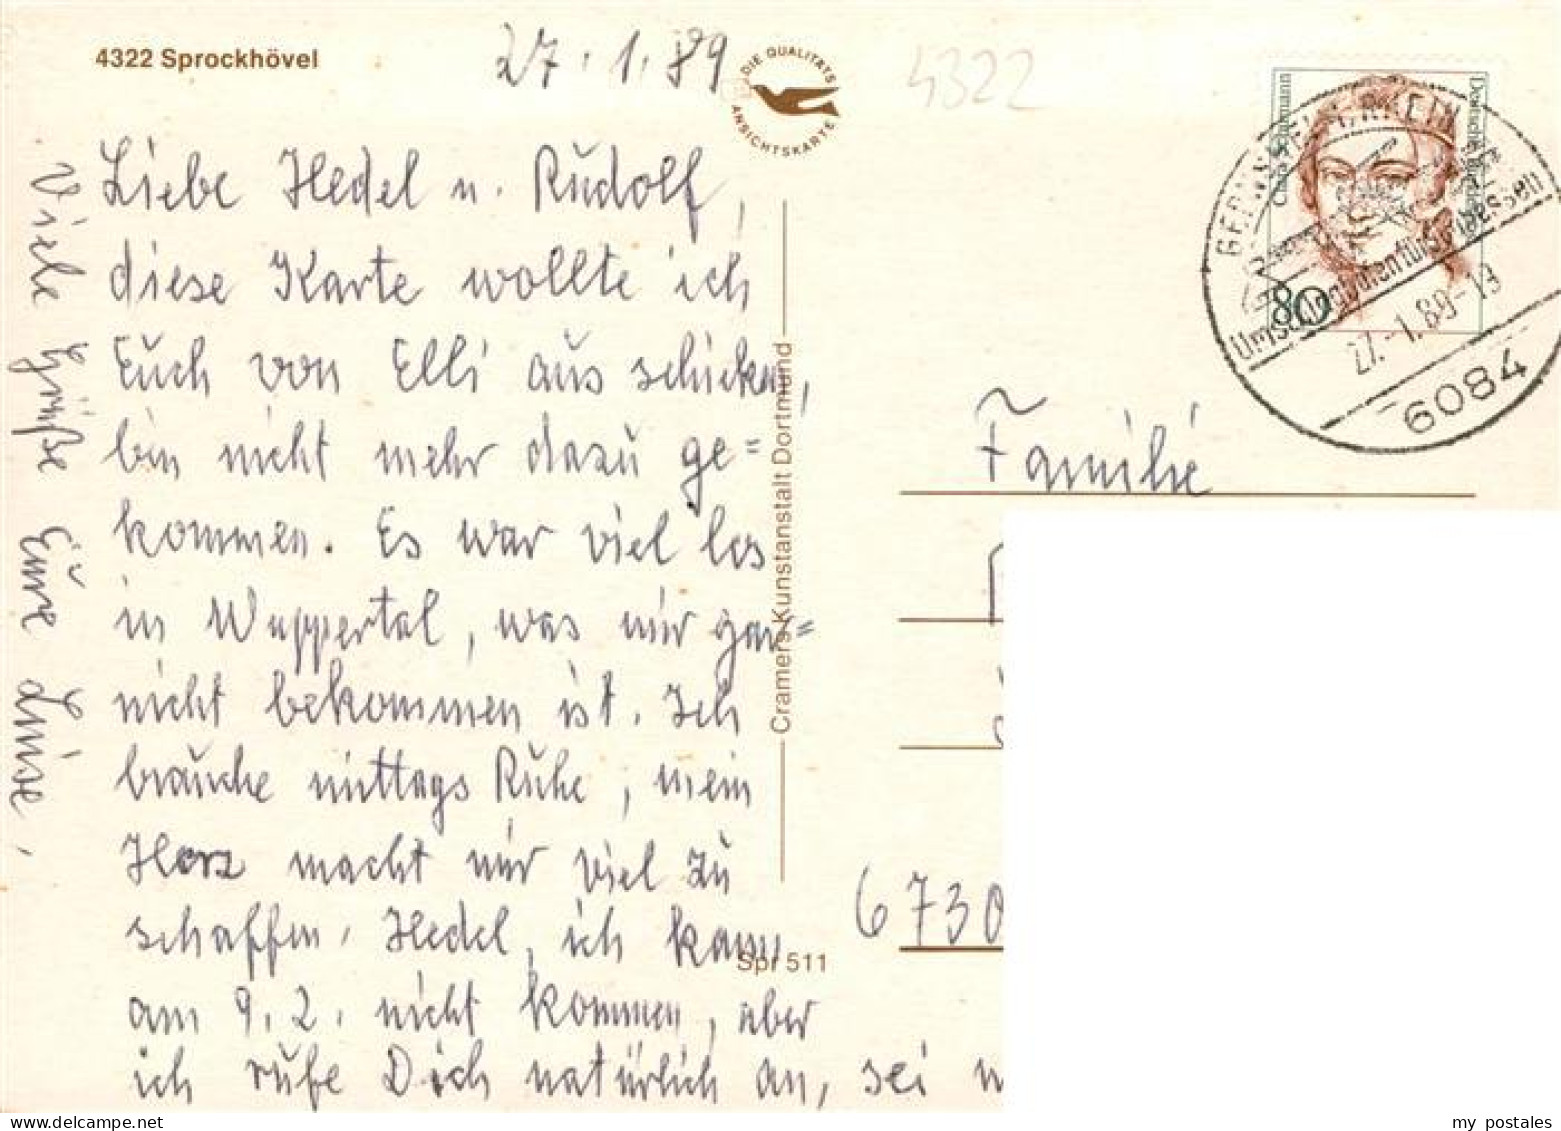 4322 Sprockhövel
27.1.89
DIE QUALITÄTS
ANSICHTSKARTE
4322
Liebe Hedel u. Rudolf,
diese Karte wollte ich
Euch von Elli aus schicken,
bin nicht mehr dazu ge=
kommen. Es war viel los
in Wuppertal, was mir gar=
nicht bekommen ist. Ich
brauche mittags Ruhe, mein
Herz macht mir viel zu
schaffen. Hedel, ich kann
am 9.2. nicht kommen, aber
ich rufe Dich natürlich an, sei
Viele Grüße Eure Luise,
Cramers Kunstanstalt Dortmund
Spr 511
Clara Schumann
Deutsche Bundespost
80
GERNSHEIM, RHEIN
27.-1.89-13
6084
Familie
6730
my postales